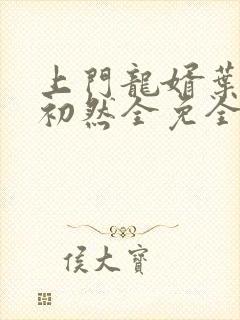 上門龍婿葉
初然全免全
侯大寶